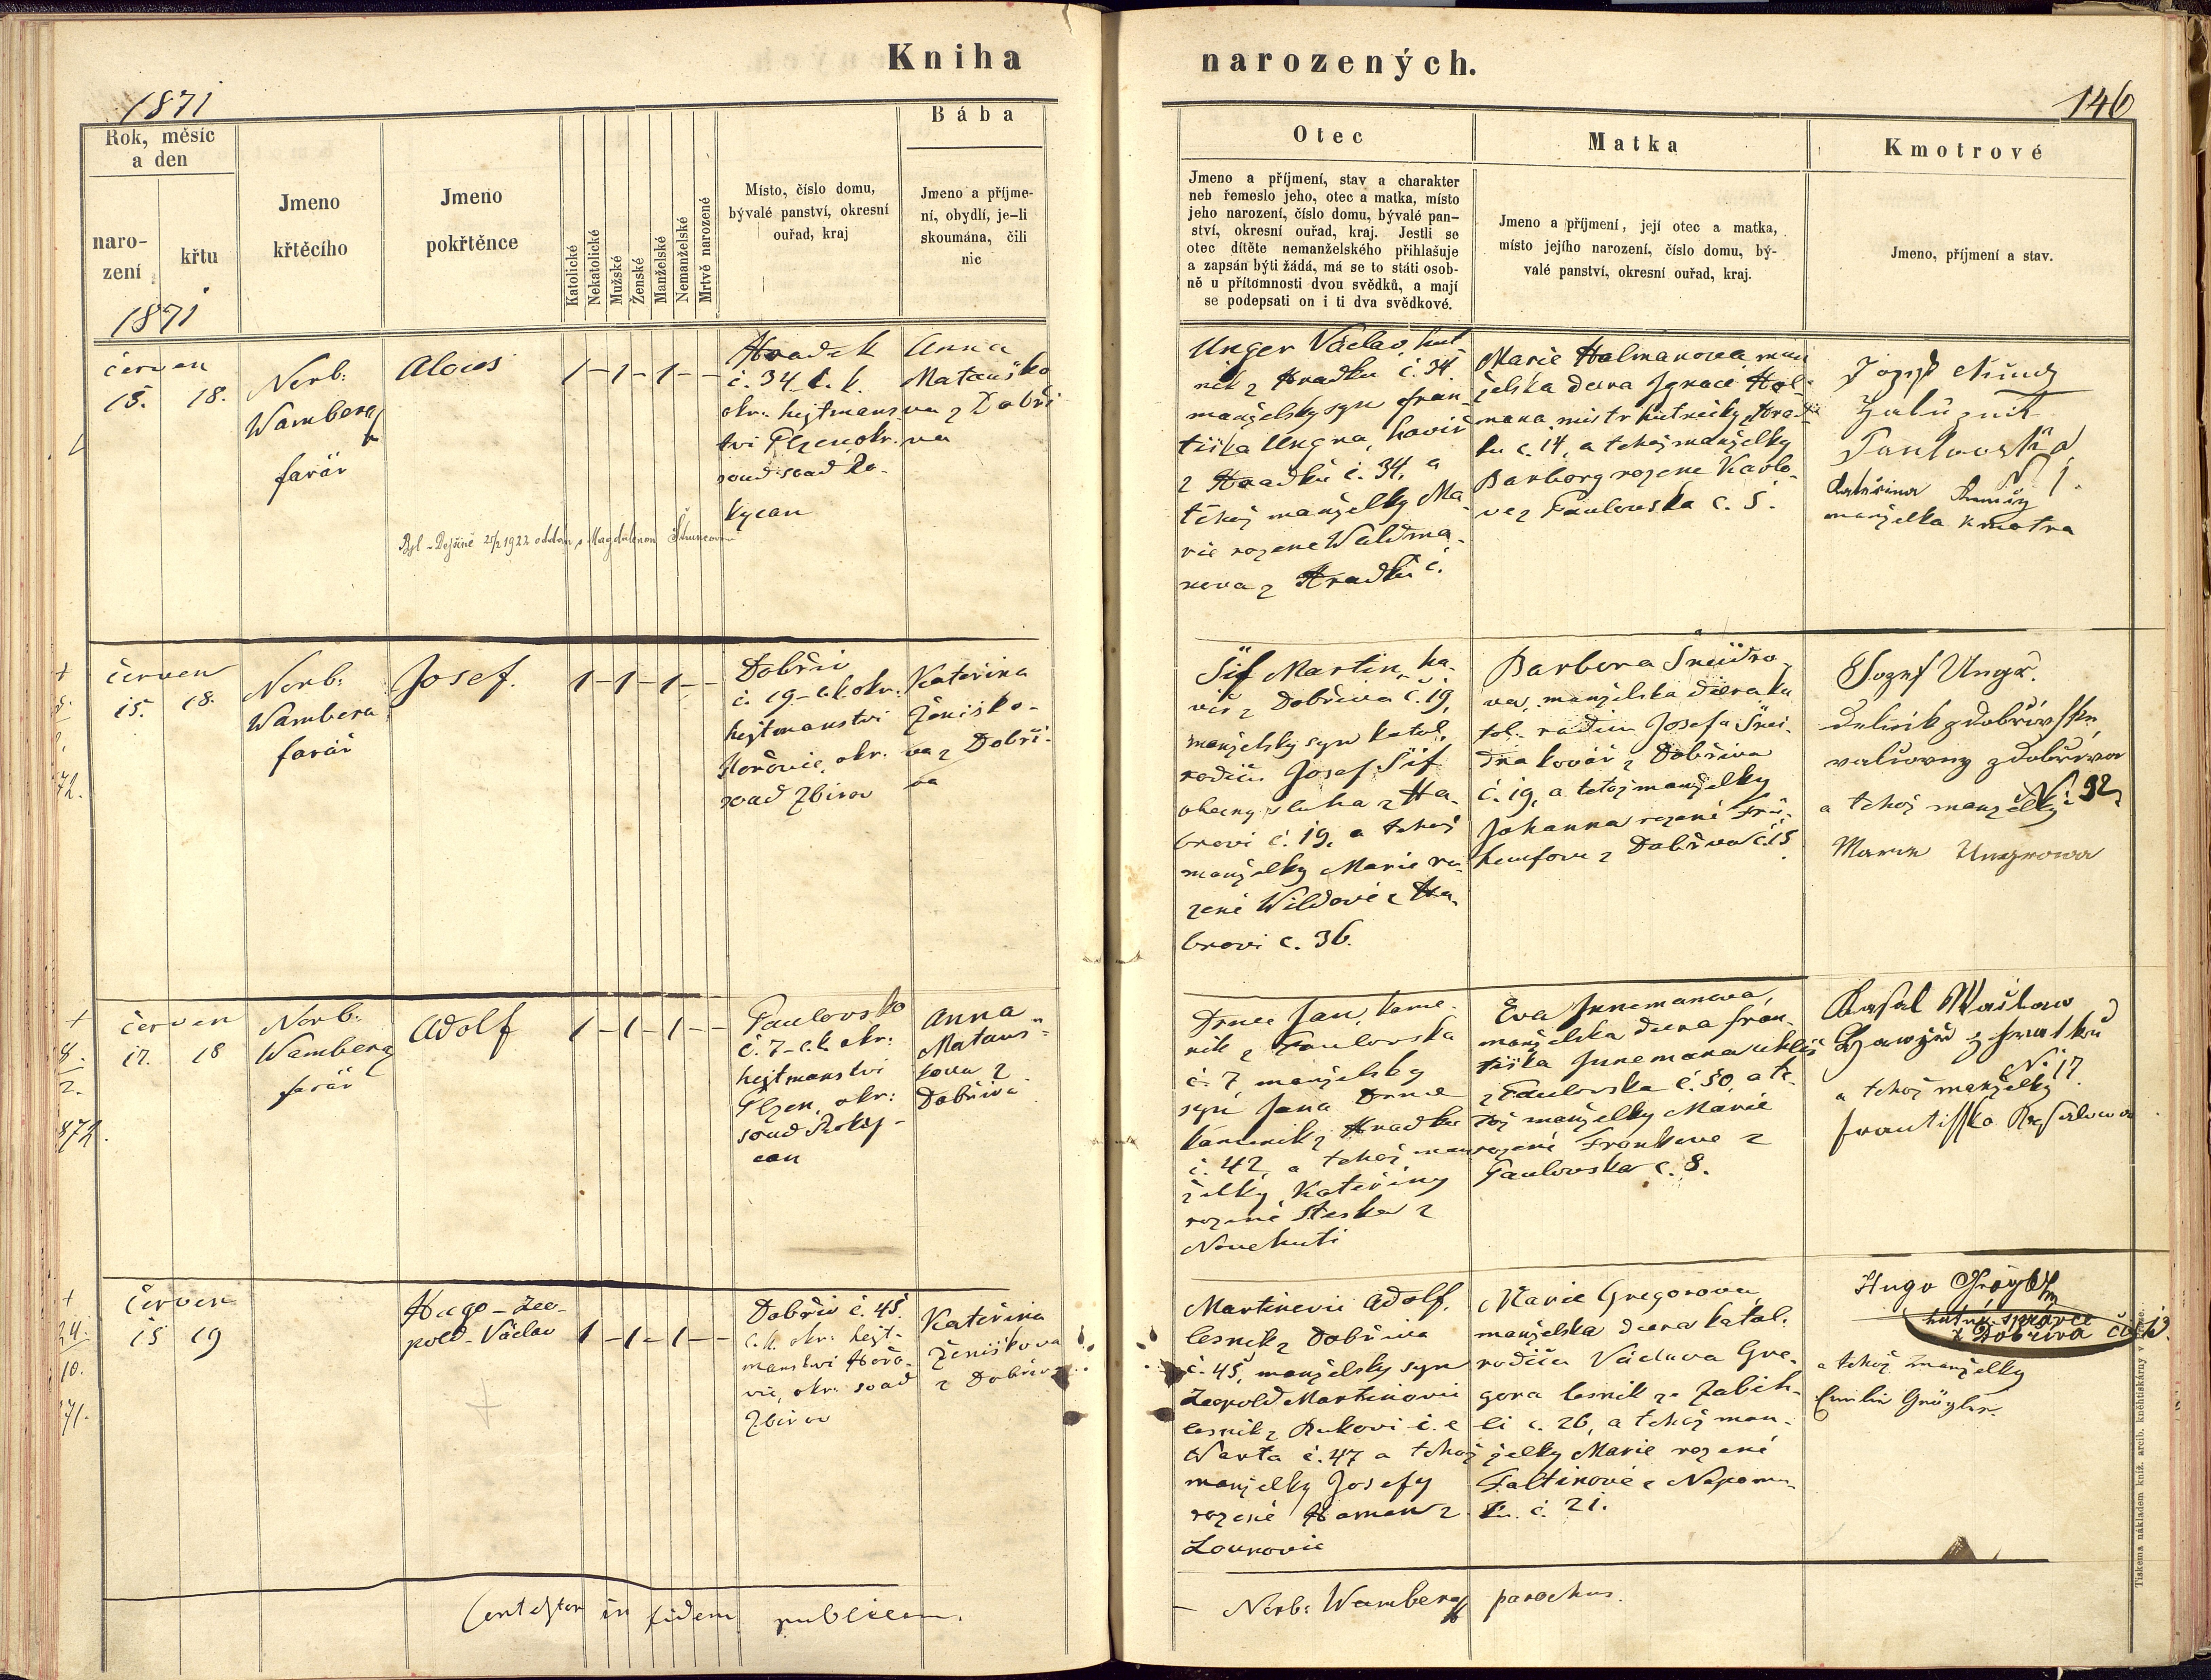 Kniha narozených.
1871
146
Rok, měsíc
a den
naro-
zení
křtu
Jmeno
křtěcího
Jmeno
pokřtěnce
Katolické
Nekatolické
Mužské
Ženské
Manželské
Nemanželské
Mrtvě narozené
Místo, číslo domu,
bývalé panství, okresní
ouřad, kraj
Bába
Jmeno a příjme-
ní, obydlí, je-li
skoumána, čili
nic
Otec
Jmeno a příjmení, stav a charakter
neb řemeslo jeho, otec a matka, místo
jeho narození, číslo domu, bývalé pan-
ství, okresní ouřad, kraj. Jestli se
otec dítěte nemanželského přihlašuje
a zapsán býti žádá, má se to státi osob-
ně u přítomnosti dvou svědků, a mají
se podepsati on i ti dva svědkové.
Matka
Jmeno a příjmení, její otec a matka,
místo jejího narození, číslo domu, bý-
valé panství, okresní ouřad, kraj.
Kmotrové
Jmeno, příjmení a stav.
1871
červen
15. 18.
Norb:
Wamberg
farár
Alois
1 – 1 – 1 – –
Hradek
č. 34 c. k.
okr. hejtmans
tvi Plzen okr.
soud Ro-
kycan
Anna
Matauško
va z Dobři
va
Byl v Dejšině 1922 oddán s Magdalenou
Unger Václav, hut-
nik z Hradku č. 34.
manželsky syn Fran-
tiška Ungra, haviř
z Hradku č. 34, a
tehož manželky Ma-
rie rozene Waldma-
nova z Hradku č.
Marie Halmanova man
želska dcera Ignace Hol-
mana mistr hutnicky z Hrad
ku č. 14, a tehož manželky
Barbory rozene Karlo-
ve z Paulovska č. 5.
Josef
Kateřina
manželka kmotra
červen
15. 18.
Norb:
Wamberg
farář
Josef.
1 – 1 – 1 – –
Dobřiv
č. 19 – c. k. okr.
hejtmanstvi
Hořovic, okr.
soud Zbirov
Kateřina
Ženiško-
va z Dobři-
va
Šif Martin, ha-
viř z Dobřiva č. 19,
manželsky syn katol.
rodičů Josef Šif
obecny sluha z Ha-
brovi č. 19, a tehož
manželky Marie ro-
zené Wildové z Ha-
brovi č. 36.
Barbora Šneidro-
va, manželska dcera ka
tol. rodičů Josefa Šnei-
dra kovář z Dobřiva
č. 19, a tétož manželky
Johanna rozené
z Dobřiva č. 15
Jozef Ungr.
delnik z dobřivské
valcovny z dobřiva
a tehož manželky N 92
Marie Ungrowa
červen
17. 18
Norb:
Wamberg
farář
Adolf
1 – 1 – 1 – –
Paulovsko
č. 7 – c. k. okr:
hejtmanstvi
Plzen, okr:
soud Roky-
can
Anna
Mataus-
kova z
Dobřiva
Drnec Jan, kame-
nik z Paulovska
č. 7 manželsky
syn Jana Drnec
kamenik z Hradku
č. 42 a tehož man
želky Kateřiny
rozené Steska z
Nove huti
Eva Junemanova,
manželska dcera Fran-
tiška Junemana uhliř
z Paulovska č. 50, a te-
tož manželky Marie
rozené Frankeve z
Paulovska č. 8.
Wáclaw
N. 17.
a tehož manželky
Frantisska
červen
15 19
Hugo – Leo-
pold – Václav
1 – 1 – 1 – –
Dobřiv č. 45
c. k. okr: hejt-
manstvi Hořo-
vic, okr. soud
Zbirov
Kateřina
Ženiškova
z Dobřiva
Martinovic Adolf.
lesnik z Dobřiva
č. 45, manželsky syn
Leopold Martinovic
lesnik z
Warta č. 47 a tehož
manželky Josefy
rozené Haman z
Lounovic
Marie Gregorova
manželska dcera katol.
rodičů Václava Gre-
gora lesnik ze Zaběh-
li č. 26, a tehož man-
želky Marie rozené
Faltinové z Nepomu-
ku č. 21.
Hugo Grögler
hutní správce
z Dobřiva
a tehož manželky
Emilie Grögler.
Contestor in fidem publicam.
Norb: Wamberg parochus.
Tiskem a nákladem kniž. arcib. kněhtiskárny v Praze.